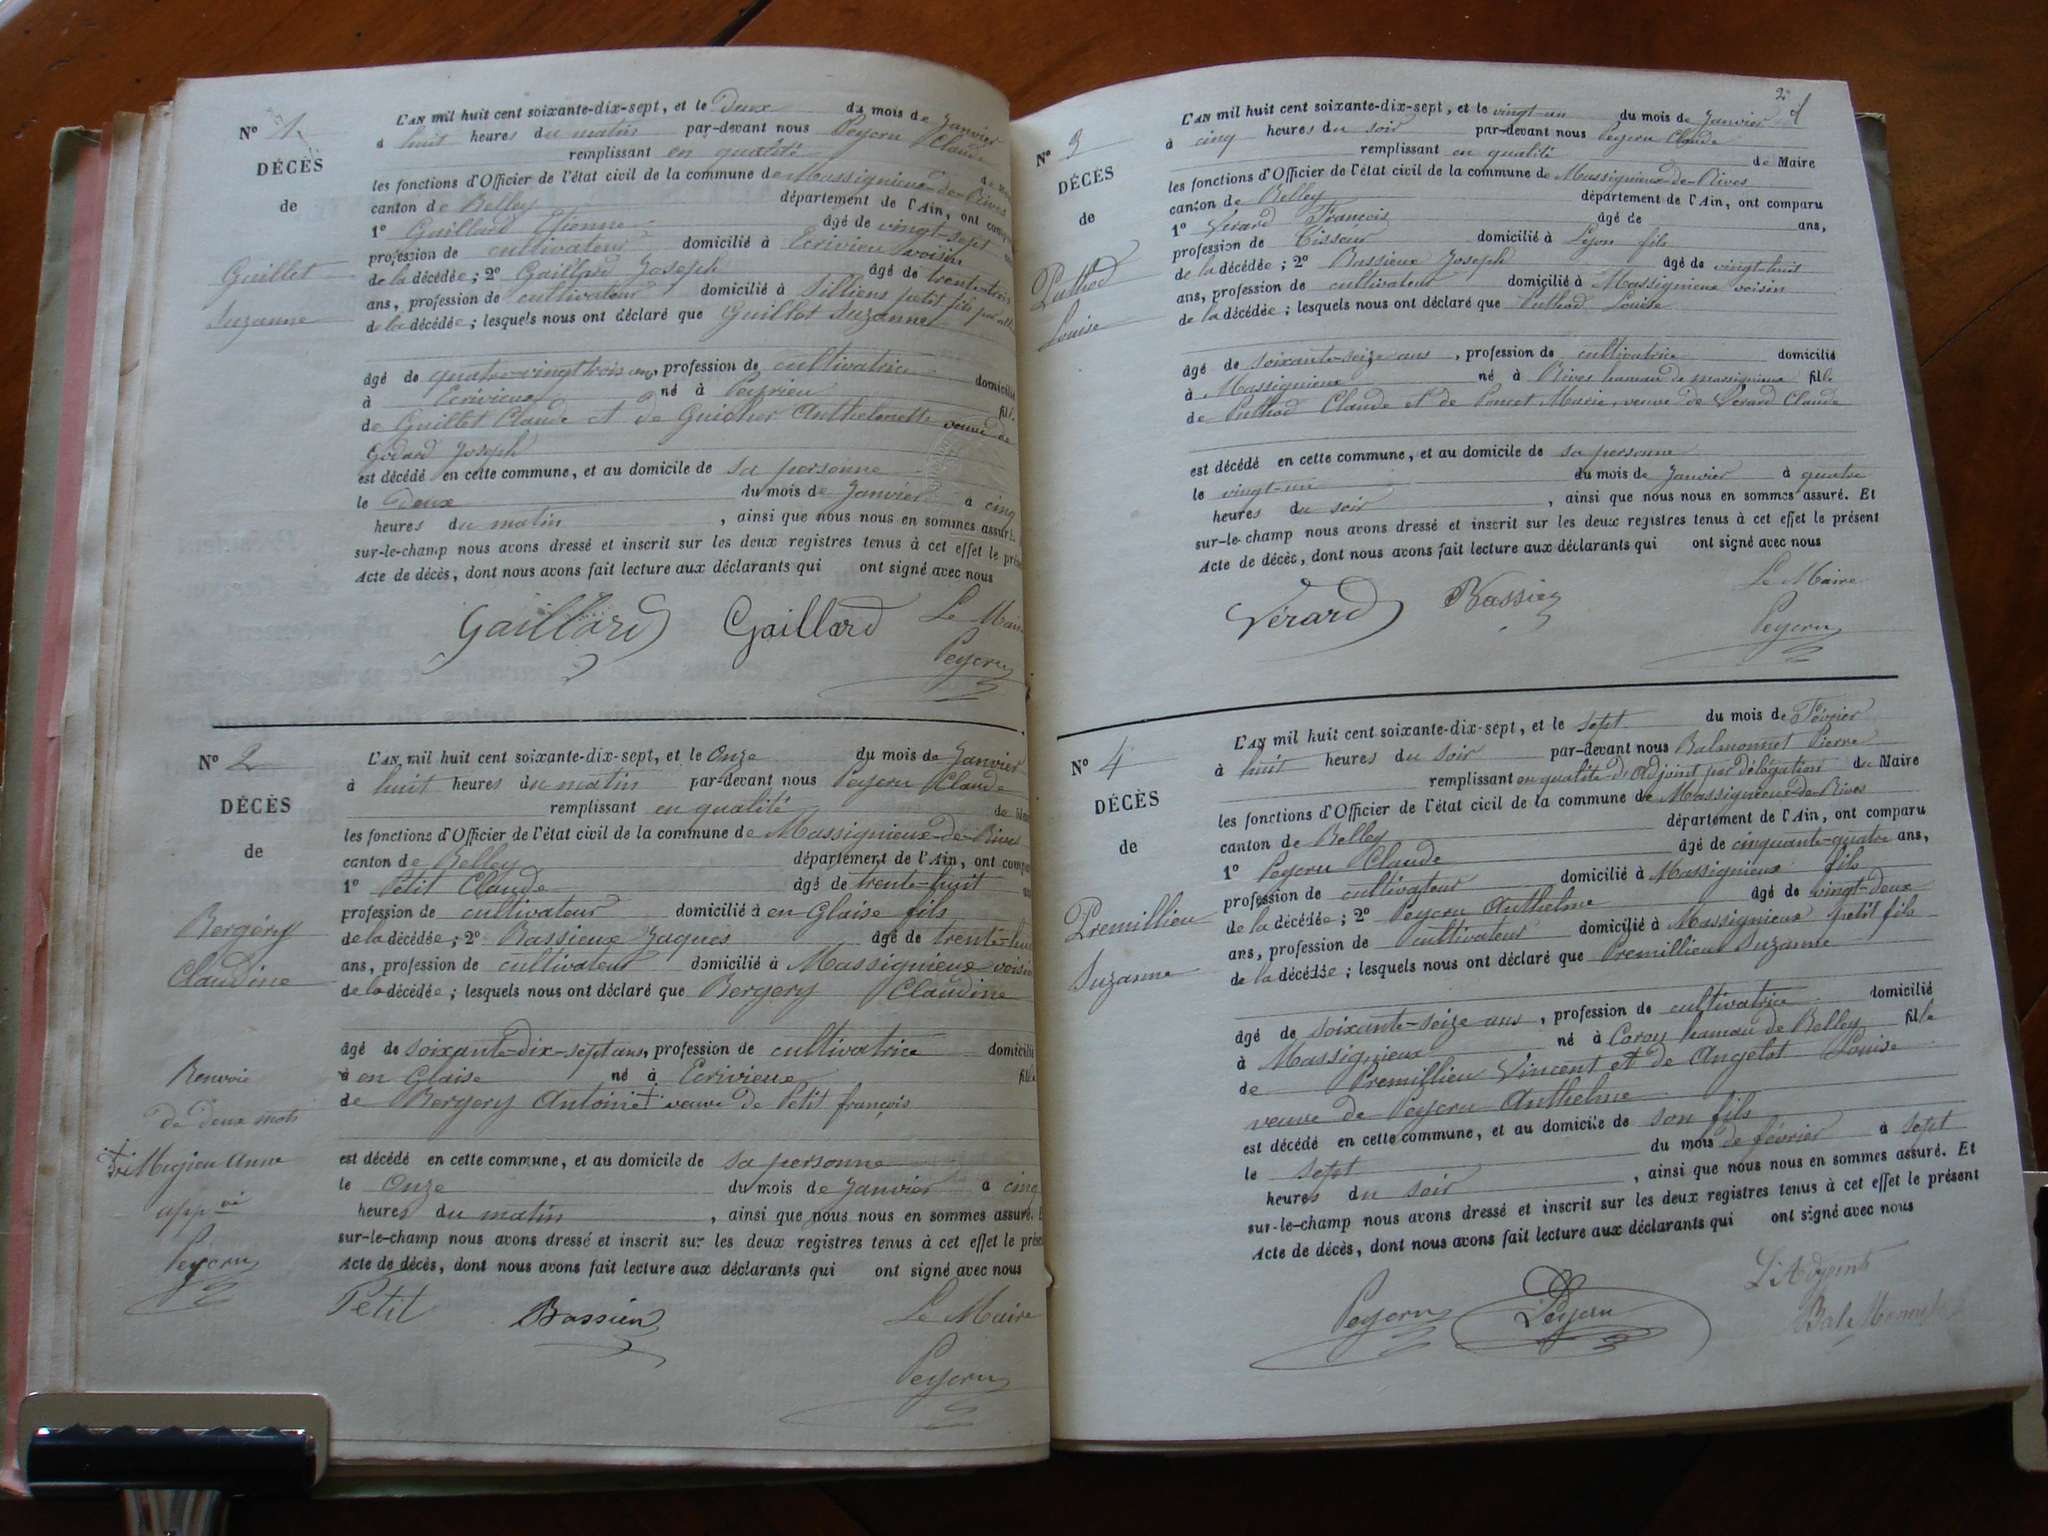 Nº 1
DÉCÈS
de
Guillet
Suzanne
L'AN mil huit cent soixante-dix-sept, et le deux du mois de Janvier
à huit heures du matin par-devant nous Peycru Claude
remplissant en qualité de
les fonctions d'Officier de l'état civil de la commune de Massignieux-de-Rives
canton de Belley département de l'Ain, ont comp
1º Gaillard Etienne âgé de vingt-sept
profession de cultivateur domicilié à Ecrivieu voisin
de la décédée; 2º Gaillard Joseph âgé de trente-trois
ans, profession de cultivateur domicilié à Silliens petit fils par
de la décédée; lesquels nous ont déclaré que Guillet Suzanne
âgé de quatre-vingt trois ans, profession de cultivatrice domicilié
à Ecrivieux né à Peyrieu fille
de Guillet Claude et de Guicher Anthelmette veuve de
Godard Joseph
est décédé en cette commune, et au domicile de sa personne
le deux du mois de Janvier à cinq
heures du matin, ainsi que nous nous en sommes assuré.
sur-le-champ nous avons dressé et inscrit sur les deux registres tenus à cet effet le prése
Acte de décès, dont nous avons fait lecture aux déclarants qui ont signé avec nous
Gaillard Gaillard Le Maire
Peycru
Nº 2
DÉCÈS
de
Bergéry
Claudine
Renvoie
de deux mots
Mujieu Anne
app vé
Peycru
L'AN mil huit cent soixante-dix-sept, et le Onze du mois de Janvier
à huit heures du matin par-devant nous Peycru Claude
remplissant en qualité de
les fonctions d'Officier de l'état civil de la commune de Massignieux-de-Rives
canton de Belley département de l'Ain, ont compa
1º Petit Claude âgé de trente-huit
profession de cultivateur domicilié à en Glaise fils
de la décédée; 2º Bassieux Jaques âgé de trente-huit
ans, profession de cultivateur domicilié à Massignieux voisin
de la décédée; lesquels nous ont déclaré que Bergery Claudine
âgé de soixante-dix-sept ans, profession de cultivatrice domicilié
à en Glaise né à Ecrivieux fille
de Bergery Antoine + veuve de Petit françois
est décédé en cette commune, et au domicile de sa personne
le Onze du mois de Janvier à cinq
heures du matin, ainsi que nous nous en sommes assuré.
sur-le-champ nous avons dressé et inscrit sur les deux registres tenus à cet effet le prése
Acte de décès, dont nous avons fait lecture aux déclarants qui ont signé avec nous
Petit Bassieu Le Maire
Peycru
2
Nº 3
DÉCÈS
de
Puthod
Louise
L'AN mil huit cent soixante-dix-sept, et le vingt-un du mois de Janvier
à cinq heures du soir par-devant nous Peycru Claude
remplissant en qualité de Maire
les fonctions d'Officier de l'état civil de la commune de Massignieux-de-Rives
canton de Belley département de l'Ain, ont comparu
1º Verard François âgé de ans,
profession de Tisseur domicilié à Lyon fils
de la décédée; 2º Bassieux Joseph âgé de vingt-huit
ans, profession de cultivateur domicilié à Massignieux voisin
de la décédée; lesquels nous ont déclaré que Puthod Louise
âgé de soixante-seize ans, profession de cultivatrice domicilié
à Massignieux né à Rives hameau de massignieux fille
de Puthod Claude et de Poncet Marie, veuve de Verard Claude
est décédé en cette commune, et au domicile de sa personne
le vingt-un du mois de Janvier à quatre
heures du soir, ainsi que nous nous en sommes assuré. Et
sur-le-champ nous avons dressé et inscrit sur les deux registres tenus à cet effet le présent
Acte de décès, dont nous avons fait lecture aux déclarants qui ont signé avec nous
Le Maire
Vérard Bassieu
Peycru
Nº 4
DÉCÈS
de
Premillieu
Suzanne
L'AN mil huit cent soixante-dix-sept, et le sept du mois de Février
à huit heures du soir par-devant nous Balmonnet Pierre
remplissant en qualité d'Adjoint par délégation du Maire
les fonctions d'Officier de l'état civil de la commune de Massignieux-de-Rives
canton de Belley département de l'Ain, ont comparu
1º Peycru Claude âgé de cinquante-quatre ans,
profession de cultivateur domicilié à Massignieux fils
de la décédée; 2º Peycru Anthelme âgé de vingt-deux
ans, profession de cultivateur domicilié à Massignieux petit fils
de la décédée; lesquels nous ont déclaré que Premillieu Suzanne
âgé de soixante-seize ans, profession de cultivatrice domicilié
à Massignieux né à Coron hameau de Belley fille
de Premillieu Vincent et de Angelot Louise
veuve de Peycru Anthelme
est décédé en cette commune, et au domicile de son fils
le sept du mois de février à sept
heures du soir, ainsi que nous nous en sommes assuré. Et
sur-le-champ nous avons dressé et inscrit sur les deux registres tenus à cet effet le présent
Acte de décès, dont nous avons fait lecture aux déclarants qui ont signé avec nous
L'Adjoint
Peycru Peycru